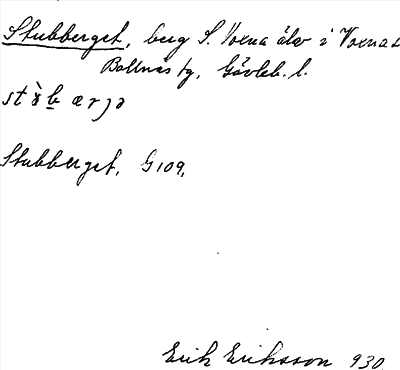 Stubberget, berg S. Voxna älv i Voxnas
Bollnäs tg, Gävleb. l.
Stubberget, G 109,
Erik Eriksson 930